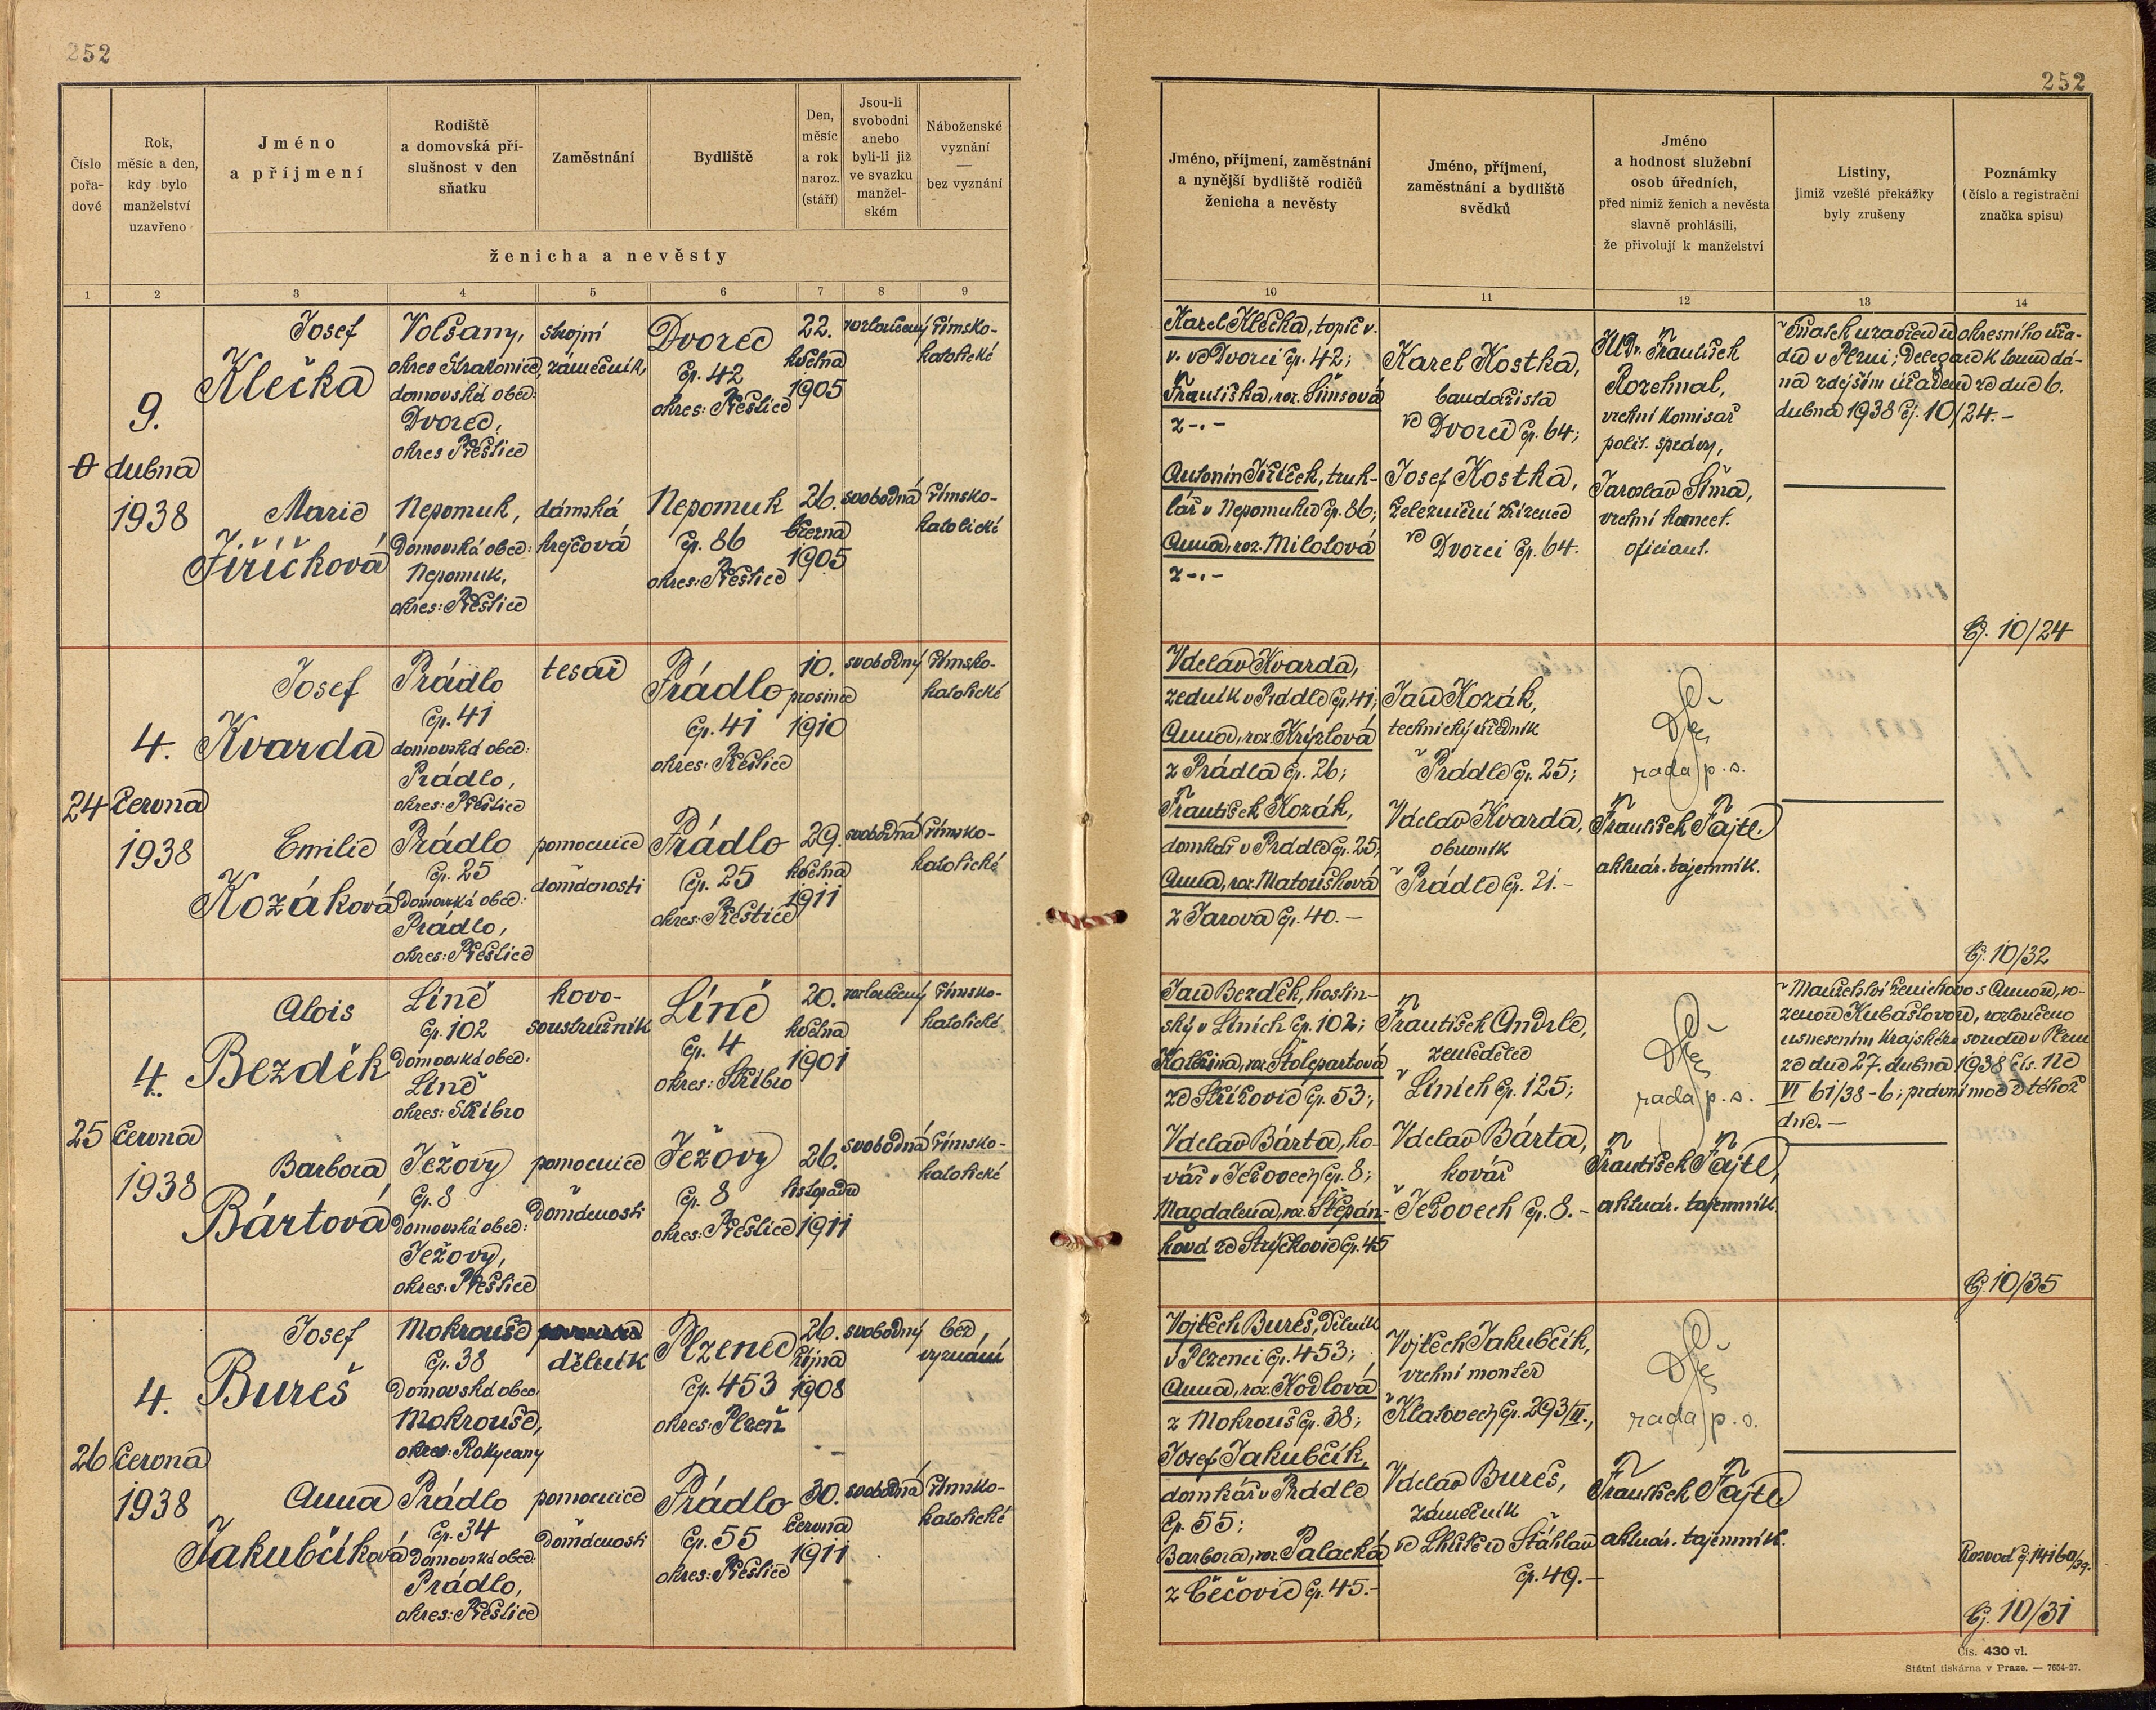 252
Číslo
pořa-
dové
Rok,
měsíc a den,
kdy bylo
manželství
uzavřeno
Jméno
a příjmení
Rodiště
a domovská pří-
slušnost v den
sňatku
Zaměstnání
Bydliště
Den,
měsíc
a rok
naroz.
(stáří)
Jsou-li
svobodni
anebo
byli-li již
ve svazku
manžel-
ském
Náboženské
vyznání
—
bez vyznání
ženicha a nevěsty
1 2 3 4 5 6 7 8 9
9.
dubna
1938
Josef
Klečka
Volšany,
okres Strakonice,
domovská obec:
Dvorec,
okres Přeštice
strojní
zámečník
Dvorec
čp. 42
okres: Přeštice
22.
května
1905
rozloučený
římsko-
katolické
Marie
Jiříčková
Nepomuk,
domovská obec:
Nepomuk,
okres: Přeštice
dámská
krejčová
Nepomuk
čp. 86
okres: Přeštice
26.
března
1905
svobodná
římsko-
katolické
24
4.
června
1938
Josef
Kvarda
Prádlo
čp. 41
domovská obec:
Prádlo,
okres: Přeštice
tesař
Prádlo
čp. 41
okres: Přeštice
10.
prosince
1910
svobodný
římsko-
katolické
Emilie
Kozáková
Prádlo
čp. 25
domovská obec:
Prádlo,
okres: Přeštice
pomocnice
v domácnosti
Prádlo
čp. 25
okres: Přeštice
29.
května
1911
svobodná
římsko-
katolické
25
4.
června
1938
Alois
Bezděk
Líně
čp. 102
domovská obec:
Líně
okres: Stříbro
kovo-
soustružník
Líně
čp. 4
okres: Stříbro
20.
května
1901
rozloučený
římsko-
katolické
Barbora
Bártová
Ježovy
čp. 8
domovská obec:
Ježovy,
okres: Přeštice
pomocnice
v domácnosti
Ježovy
čp. 8
okres: Přeštice
26.
listopadu
1911
svobodná
římsko-
katolické
26
4.
června
1938
Josef
Bureš
Mokrouše
čp. 38
domovská obec:
Mokrouše,
okres: Rokycany
dělník
Plzenec
čp. 453
okres: Plzeň
26.
října
1908
svobodný
bez
vyznání
Anna
Jakubčíková
Prádlo
čp. 34
domovská obec:
Prádlo,
okres: Přeštice
pomocnice
v domácnosti
Prádlo
čp. 55
okres: Přeštice
30.
června
1911
svobodná
římsko-
katolické
252
Jméno, příjmení, zaměstnání
a nynější bydliště rodičů
ženicha a nevěsty
Jméno, příjmení,
zaměstnání a bydliště
svědků
Jméno
a hodnost služební
osob úředních,
před nimiž ženich a nevěsta
slavně prohlásili,
že přivolují k manželství
Listiny,
jimiž vzešlé překážky
byly zrušeny
Poznámky
(číslo a registrační
značka spisu)
10 11 12 13 14
Karel Klečka, topič v.
v. ve Dvorci čp. 42;
Františka, roz. Šimsová
z -.-
Antonín Jiříček, truh-
lář v Nepomuku čp. 86;
Anna, roz. Milotová
z -.-
Karel Kostka,
bandažista
ve Dvorci čp. 64;
Josef Kostka,
železniční zřízenec
ve Dvorci čp. 64.
JUDr. František
Rozehnal,
vrchní komisař
polit. správy,
Jaroslav Šíma,
vrchní kancel.
oficiant.
Sňatek uzavřen u okresního úřa-
du v Plzni; delegace k tomu dá-
na zdejším úřadem ze dne 6.
dubna 1938 čj. 10/24.-
Čj. 10/24
Václav Kvarda,
zedník v Prádle čp. 41;
Anna, roz. Krýzlová
z Prádla čp. 26;
František Kozák,
domkář v Prádle čp. 25;
Anna, roz. Matoušková
z Jarova čp. 40. -
Jan Kozák,
technický úředník
v Prádle čp. 25;
Václav Kvarda,
obuvník
v Prádle čp. 21. -
rada p. s.
František Fajtl
aktuár. tajemník.
Čj. 10/32
Jan Bezděk, hostin-
ský v Líních čp. 102;
Kateřina, roz. Štolepartová
ze Střížovic čp. 53;
Václav Bárta, ko-
vář v Ježovech čp. 8;
Magdalena, roz. Štěpán-
ková ze Strýčkovic čp. 45
František Andrle,
zemědělec
v Líních čp. 125;
Václav Bárta,
kovář
v Ježovech čp. 8. -
rada p. s.
František Fajtl,
aktuár. tajemník
Manželství ženichovo s Annou, ro-
zenou Kubaštovou, rozloučeno
usnesením krajského soudu v Plzni
ze dne 27. dubna 1938 čís. Nc
VI 61/38-6; právní moc z téhož
dne. -
Čj. 10/35
Vojtěch Bureš, dělník
v Plzenci čp. 453;
Anna, roz. Kodlová
z Mokrouš čp. 38;
Josef Jakubčík,
domkář v Prádle
čp. 55;
Barbora, roz. Palacká
z Čečovic čp. 45.-
Vojtěch Jakubčík,
vrchní montér
v Klatovech čp. 293/III.,
Václav Bureš,
zámečník
ve Lhůtě u Šťáhlav
čp. 49. -
rada p. s.
František Fajtl
aktuár. tajemník.
Rozvod čj. 14160/39.
Čj. 10/31
Čís. 430 vl.
Státní tiskárna v Praze. — 7654-27.